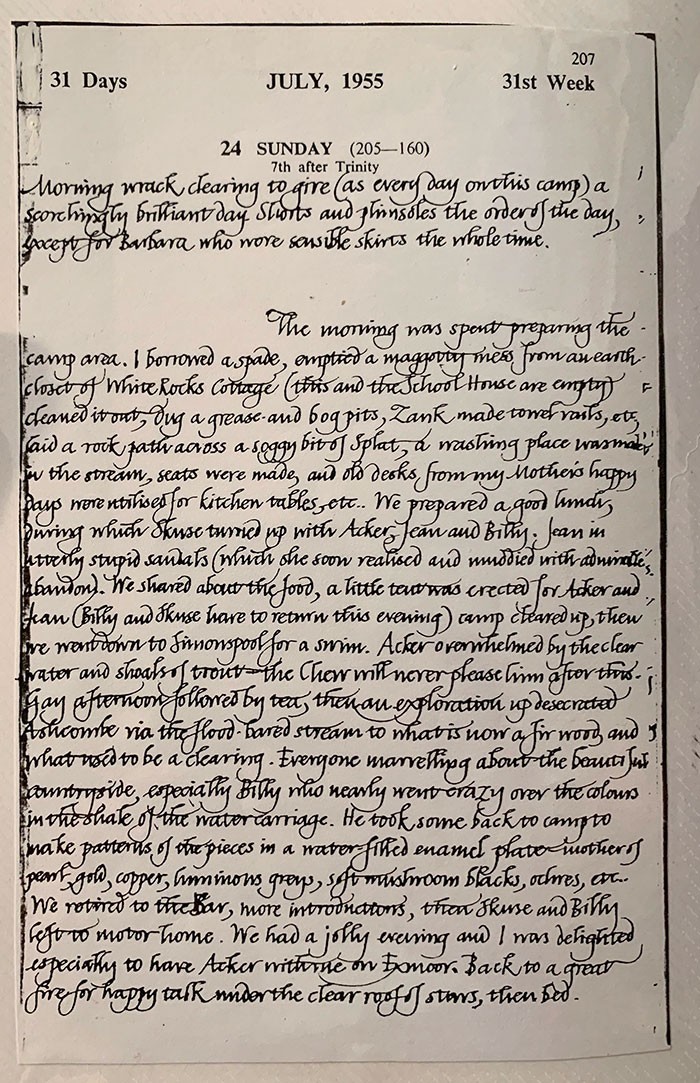 207
31 Days JULY, 1955 31st Week
24 SUNDAY (205—160)
7th after Trinity
Morning wrack clearing to give (as every day on this camp) a
scorchingly brilliant day. Shorts and plimsoles the order of the day,
except for Barbara who wore sensible skirts the whole time.
The morning was spent preparing the
camp area. I borrowed a spade, emptied a maggotty mess from an earth
closet of White Rocks Cottage (this and the School House are empty)
cleaned it out, dug a grease and bog pits, Zank made towel rails, etc,
laid a rock path across a soggy bit of Splat, a washing place was made
in the stream, seats were made, and old desks from my Mother's happy
days were utilised for kitchen tables, etc.. We prepared a good lunch,
during which Skuse turned up with Acker, Jean and Billy. Jean in
utterly stupid sandals (which she soon realised and muddied with admirable
abandon). We shared about the food, a little tent was erected for Acker and
Jean (Billy and Skuse have to return this evening) camp cleared up, then
we went down to Simonspool for a swim. Acker overwhelmed by the clear
water and shoals of trout — the Chew will never please him after this.
Gay afternoon followed by tea, then an exploration up desecrated
Ashcombe via the flood-bared stream to what is now a fir wood, and
what used to be a clearing. Everyone marvelling about the beautiful
countryside, especially Billy who nearly went crazy over the colours
in the shale of the water carriage. He took some back to camp to
make patterns of the pieces in a water-filled enamel plate — mother of
pearl, gold, copper, luminous greys, soft mushroom blacks, ochres, etc..
We retired to the Bar, more introductions, then Skuse and Billy
left to motor home. We had a jolly evening and I was delighted
especially to have Acker with me on Exmoor. Back to a great
fire for happy talk under the clear roof of stars, then bed.